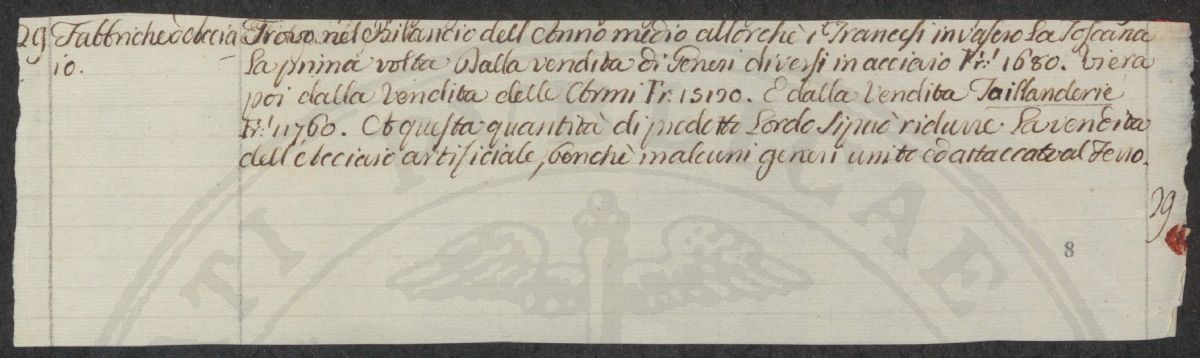 29 Fabbriche d'Accia Trovo nel Bilancio dell Anno medio allorchè i Francesi invasero la Toscana
io. la prima volta Dalla vendita di Generi diversi in acciaio Fr.i 1680. Viera
poi dalla Vendita delle Armi Fr. 15120. E dalla Vendita Taillanderie
Fr.i 11760. A questa quantità di prodotto Lordo si può ridurre la vendita
dell'Acciaio artificiale, benchè in alcuni generi unito ed attaccato al Ferro.
29
8